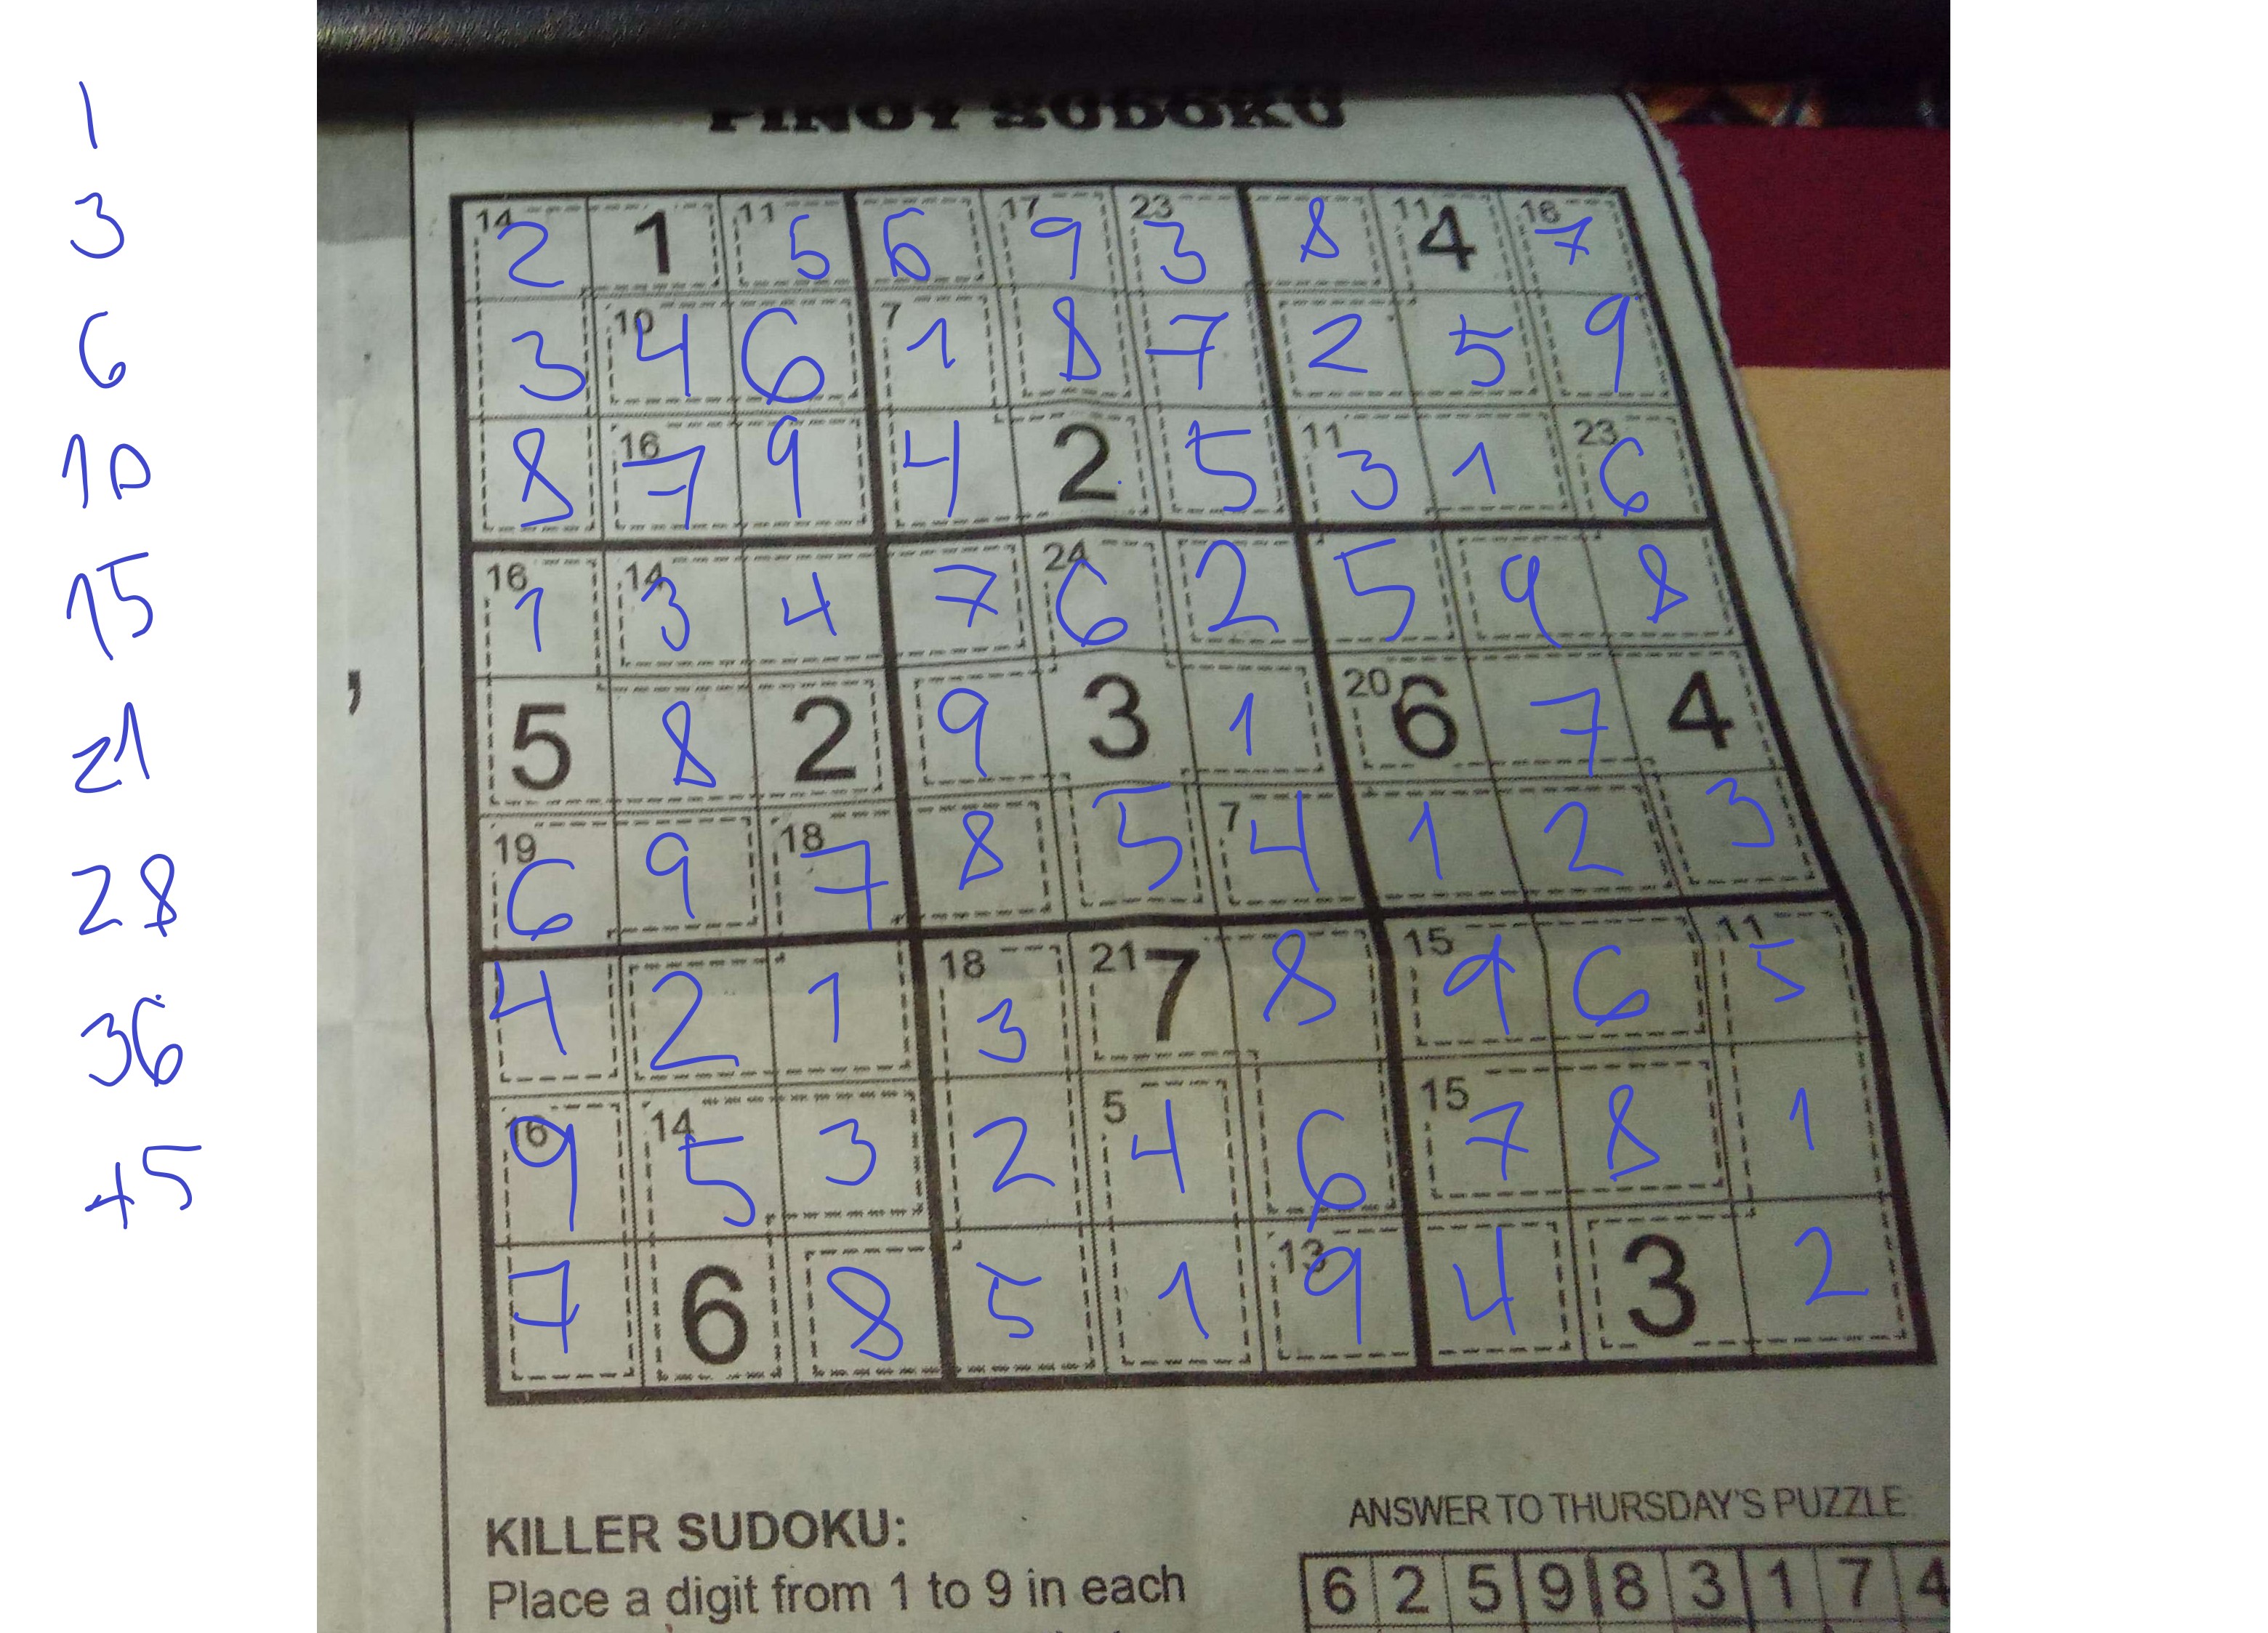 1
3
6
10
15
21
28
36
45
PINOY SUDOKU
14 2 1 11 5 6 17 9 23 3 8 11 4 16 7
3 10 4 6 7 1 8 7 2 5 9
8 16 7 9 4 2 5 11 3 1 23 6
16 1 14 3 4 7 24 6 2 5 9 8
5 8 2 9 3 1 20 6 7 4
19 6 9 18 7 8 5 7 4 1 2 3
4 2 1 18 3 21 7 8 15 9 6 11 5
16 9 14 5 3 2 5 4 6 15 7 8 1
7 6 8 5 1 13 9 4 3 2
KILLER SUDOKU:
Place a digit from 1 to 9 in each
ANSWER TO THURSDAY'S PUZZLE
6 2 5 9 8 3 1 7 4